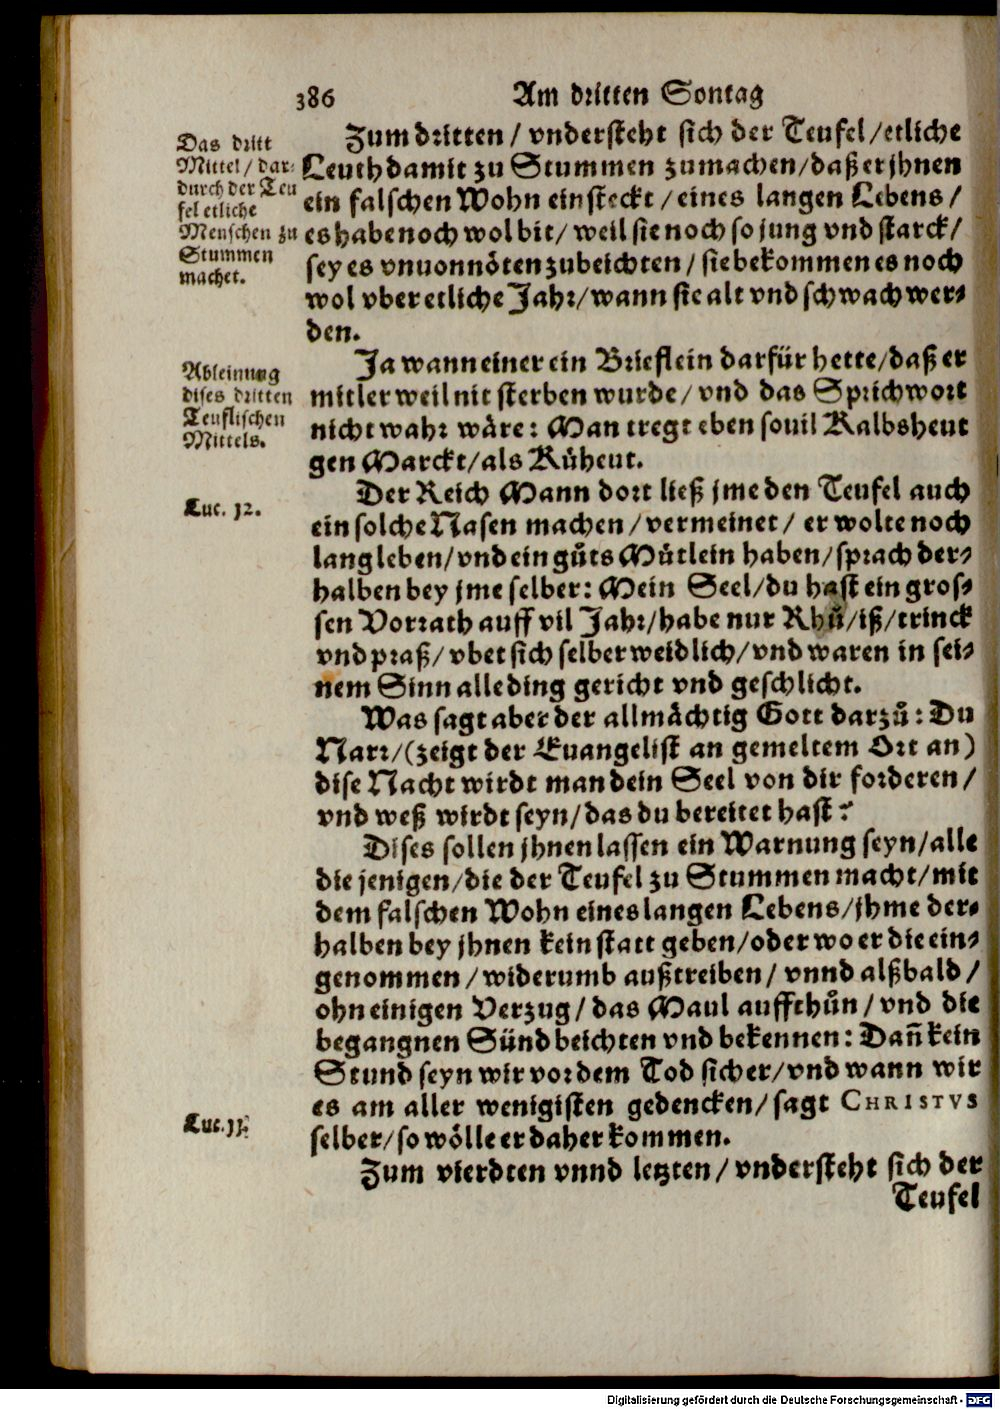 386 Am dritten Sontag
Zum dritten / vndersteht sich der Teufel / etliche
Leuth damit zu Stummen zumachen / daß er jhnen
ein falschen Wohn einsteckt / eines langen Lebens /
es habe noch wol bit / weil sie noch so jung vnd starck /
sey es vnuonnöten zubeichten / sie bekommen es noch
wol vber etliche Jahr / wann sie alt vnd schwach wer-
den.
Das dritt
Mittel / dar-
durch der Teu
fel etliche
Menschen zu
Stummen
machet.
Ja wann einer ein Brieflein darfür hette / daß er
mitler weil nit sterben wurde / vnd das Sprichwort
nicht wahr wäre: Man tregt eben souil Kalbsheut
gen Marckt / als Kůheut.
Ableinung
dises dritten
Teuflischen
Mittels.
Der Reich Mann dort ließ jme den Teufel auch
ein solche Nasen machen / vermeinet / er wolte noch
lang leben / vnd ein gůts Můtlein haben / sprach der-
halben bey jme selber: Mein Seel / du hast ein gros-
sen Vorrath auff vil Jahr / habe nur Rhů / iß / trinck
vnd praß / vbet sich selber weidlich / vnd waren in sei-
nem Sinn alle ding gericht vnd geschlicht.
Luc. 12.
Was sagt aber der allmächtig Gott darzů: Du
Narr / (zeigt der Euangelist an gemeltem Ort an)
dise Nacht wirdt man dein Seel von dir forderen /
vnd weß wirdt seyn / das du bereitet hast?
Dises sollen jhnen lassen ein Warnung seyn / alle
die jenigen / die der Teufel zu Stummen macht / mit
dem falschen Wohn eines langen Lebens / jhme der-
halben bey jhnen kein statt geben / oder wo er die ein-
genommen / widerumb außtreiben / vnnd alßbald /
ohn einigen Verzug / das Maul auffthůn / vnd die
begangnen Sünd beichten vnd bekennen: Dañ kein
Stund seyn wir vor dem Tod sicher / vnd wann wir
es am aller wenigisten gedencken / sagt CHRISTVS
selber / so wölle er daher kommen.
Luc. 11.
Zum vierdten vnnd letzten / vndersteht sich der
Teufel
Digitalisierung gefördert durch die Deutsche Forschungsgemeinschaft - DFG